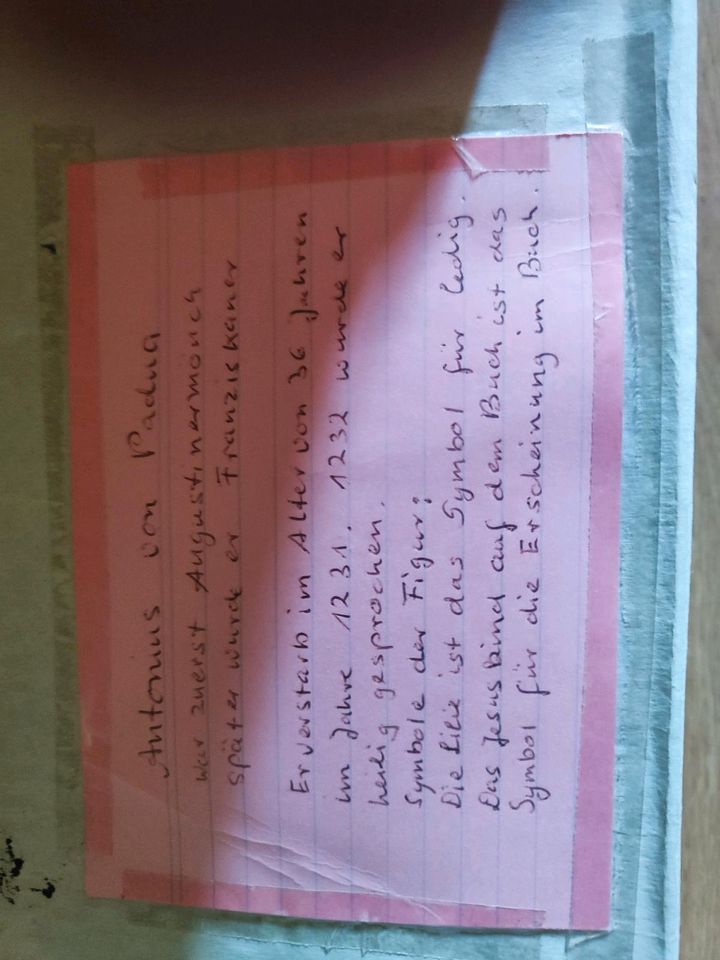 Antonius von Padua
war zuerst Augustinermönch
später wurde er Franziskaner
Er verstarb im Alter von 36 Jahren
im Jahre 1231. 1232 wurde er
heilig gesprochen.
Symbole der Figur:
Die Lilie ist das Symbol für ledig.
Das Jesuskind auf dem Buch ist das
Symbol für die Erscheinung im Buch.